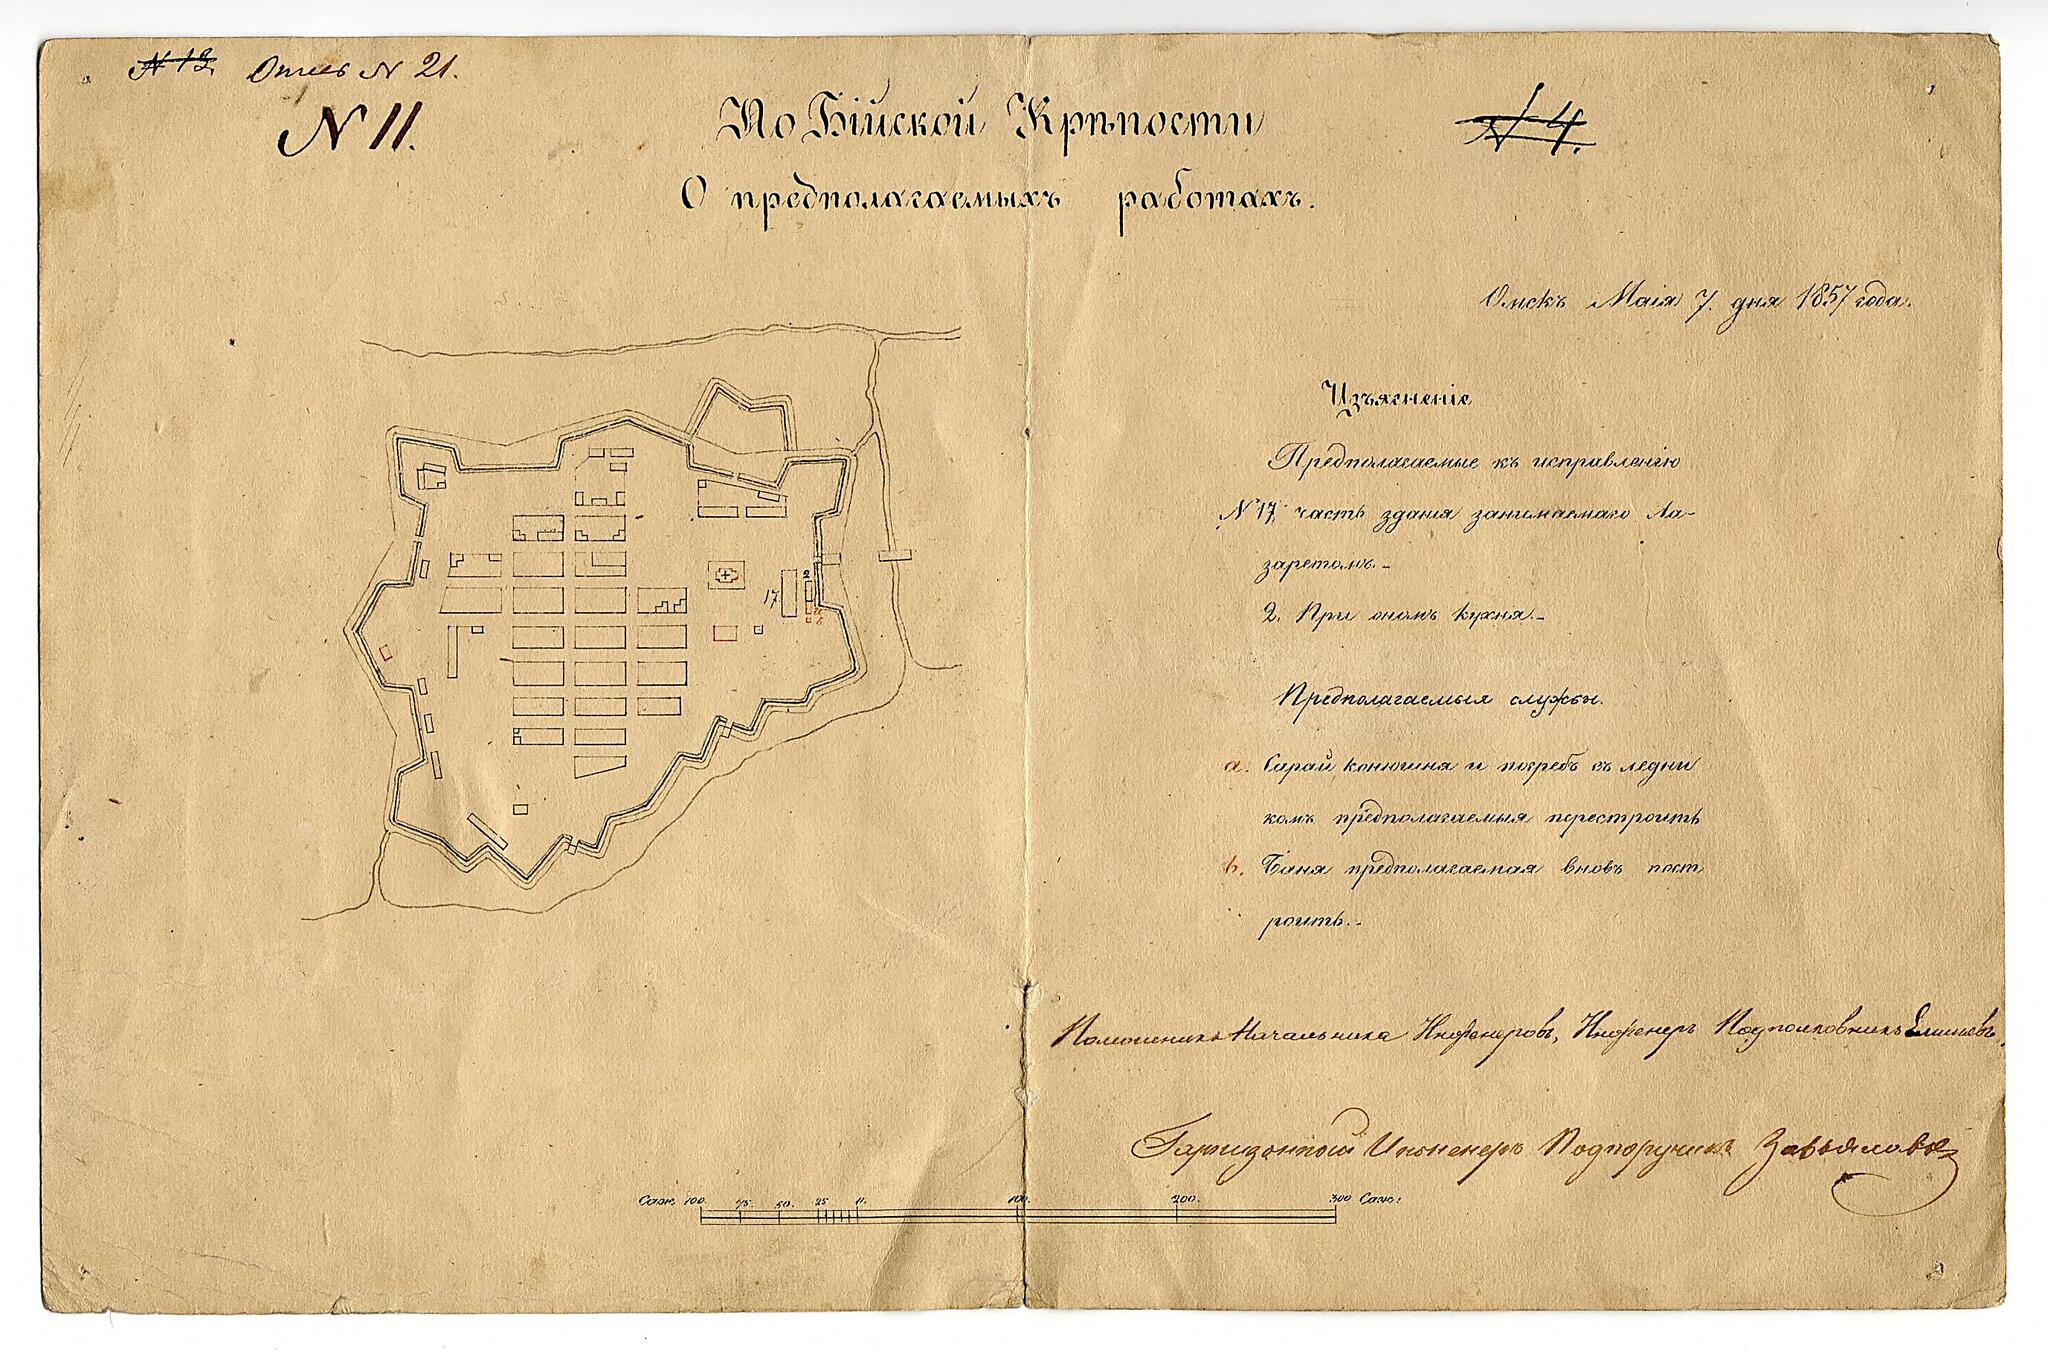 N 13. Опись N 21.
N 11.
N 4.
По Бійской Крѣпости
О предполагаемыхъ работахъ.
Омскъ Маія 7. дня 1857 года.
Изъясненіе
Предполагаемые къ исправленію
N 17, часть зданія занимаемаго Ла-
заретомъ.-
2. При ономъ кухня.-
Предполагаемыя службы.
a. Сарай конюшня и погребъ съ ледни
комъ предполагаемыя перестроить
b. Баня предполагаемая вновь пост
роить.-
2
17.
a
b
Помощникъ Начальника Инженеровъ, Инженеръ Подполковникъ
Гарнизонный Инженеръ Подпоручикъ Завьяловъ
Саж 100. 75. 50. 25 100. 200. 300 Саж: